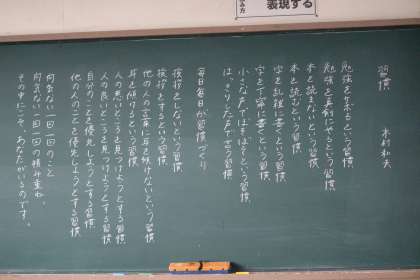 み方
表現する
習慣
木村和夫
勉強を怠るという習慣
勉強を真剣にやるという習慣
本を読まないという習慣
本を読むという習慣
字を乱雑に書くという習慣
字を丁寧に書くという習慣
小さな声でぼそぼそという習慣
はっきりした声で言う習慣
毎日毎日が習慣づくり
挨拶をしないという習慣
挨拶をするという習慣
他の人の言葉に耳を傾けないという習慣
耳を傾けるという習慣
人の悪いところを見つけようとする習慣
人の良いところを見つけようとする習慣
自分のことを優先しようとする習慣
他の人のことを優先しようとする習慣
何気ない一回一回のこと
何気ない一回一回の積み重ね、
その中にこそ、あなたがいるのです。